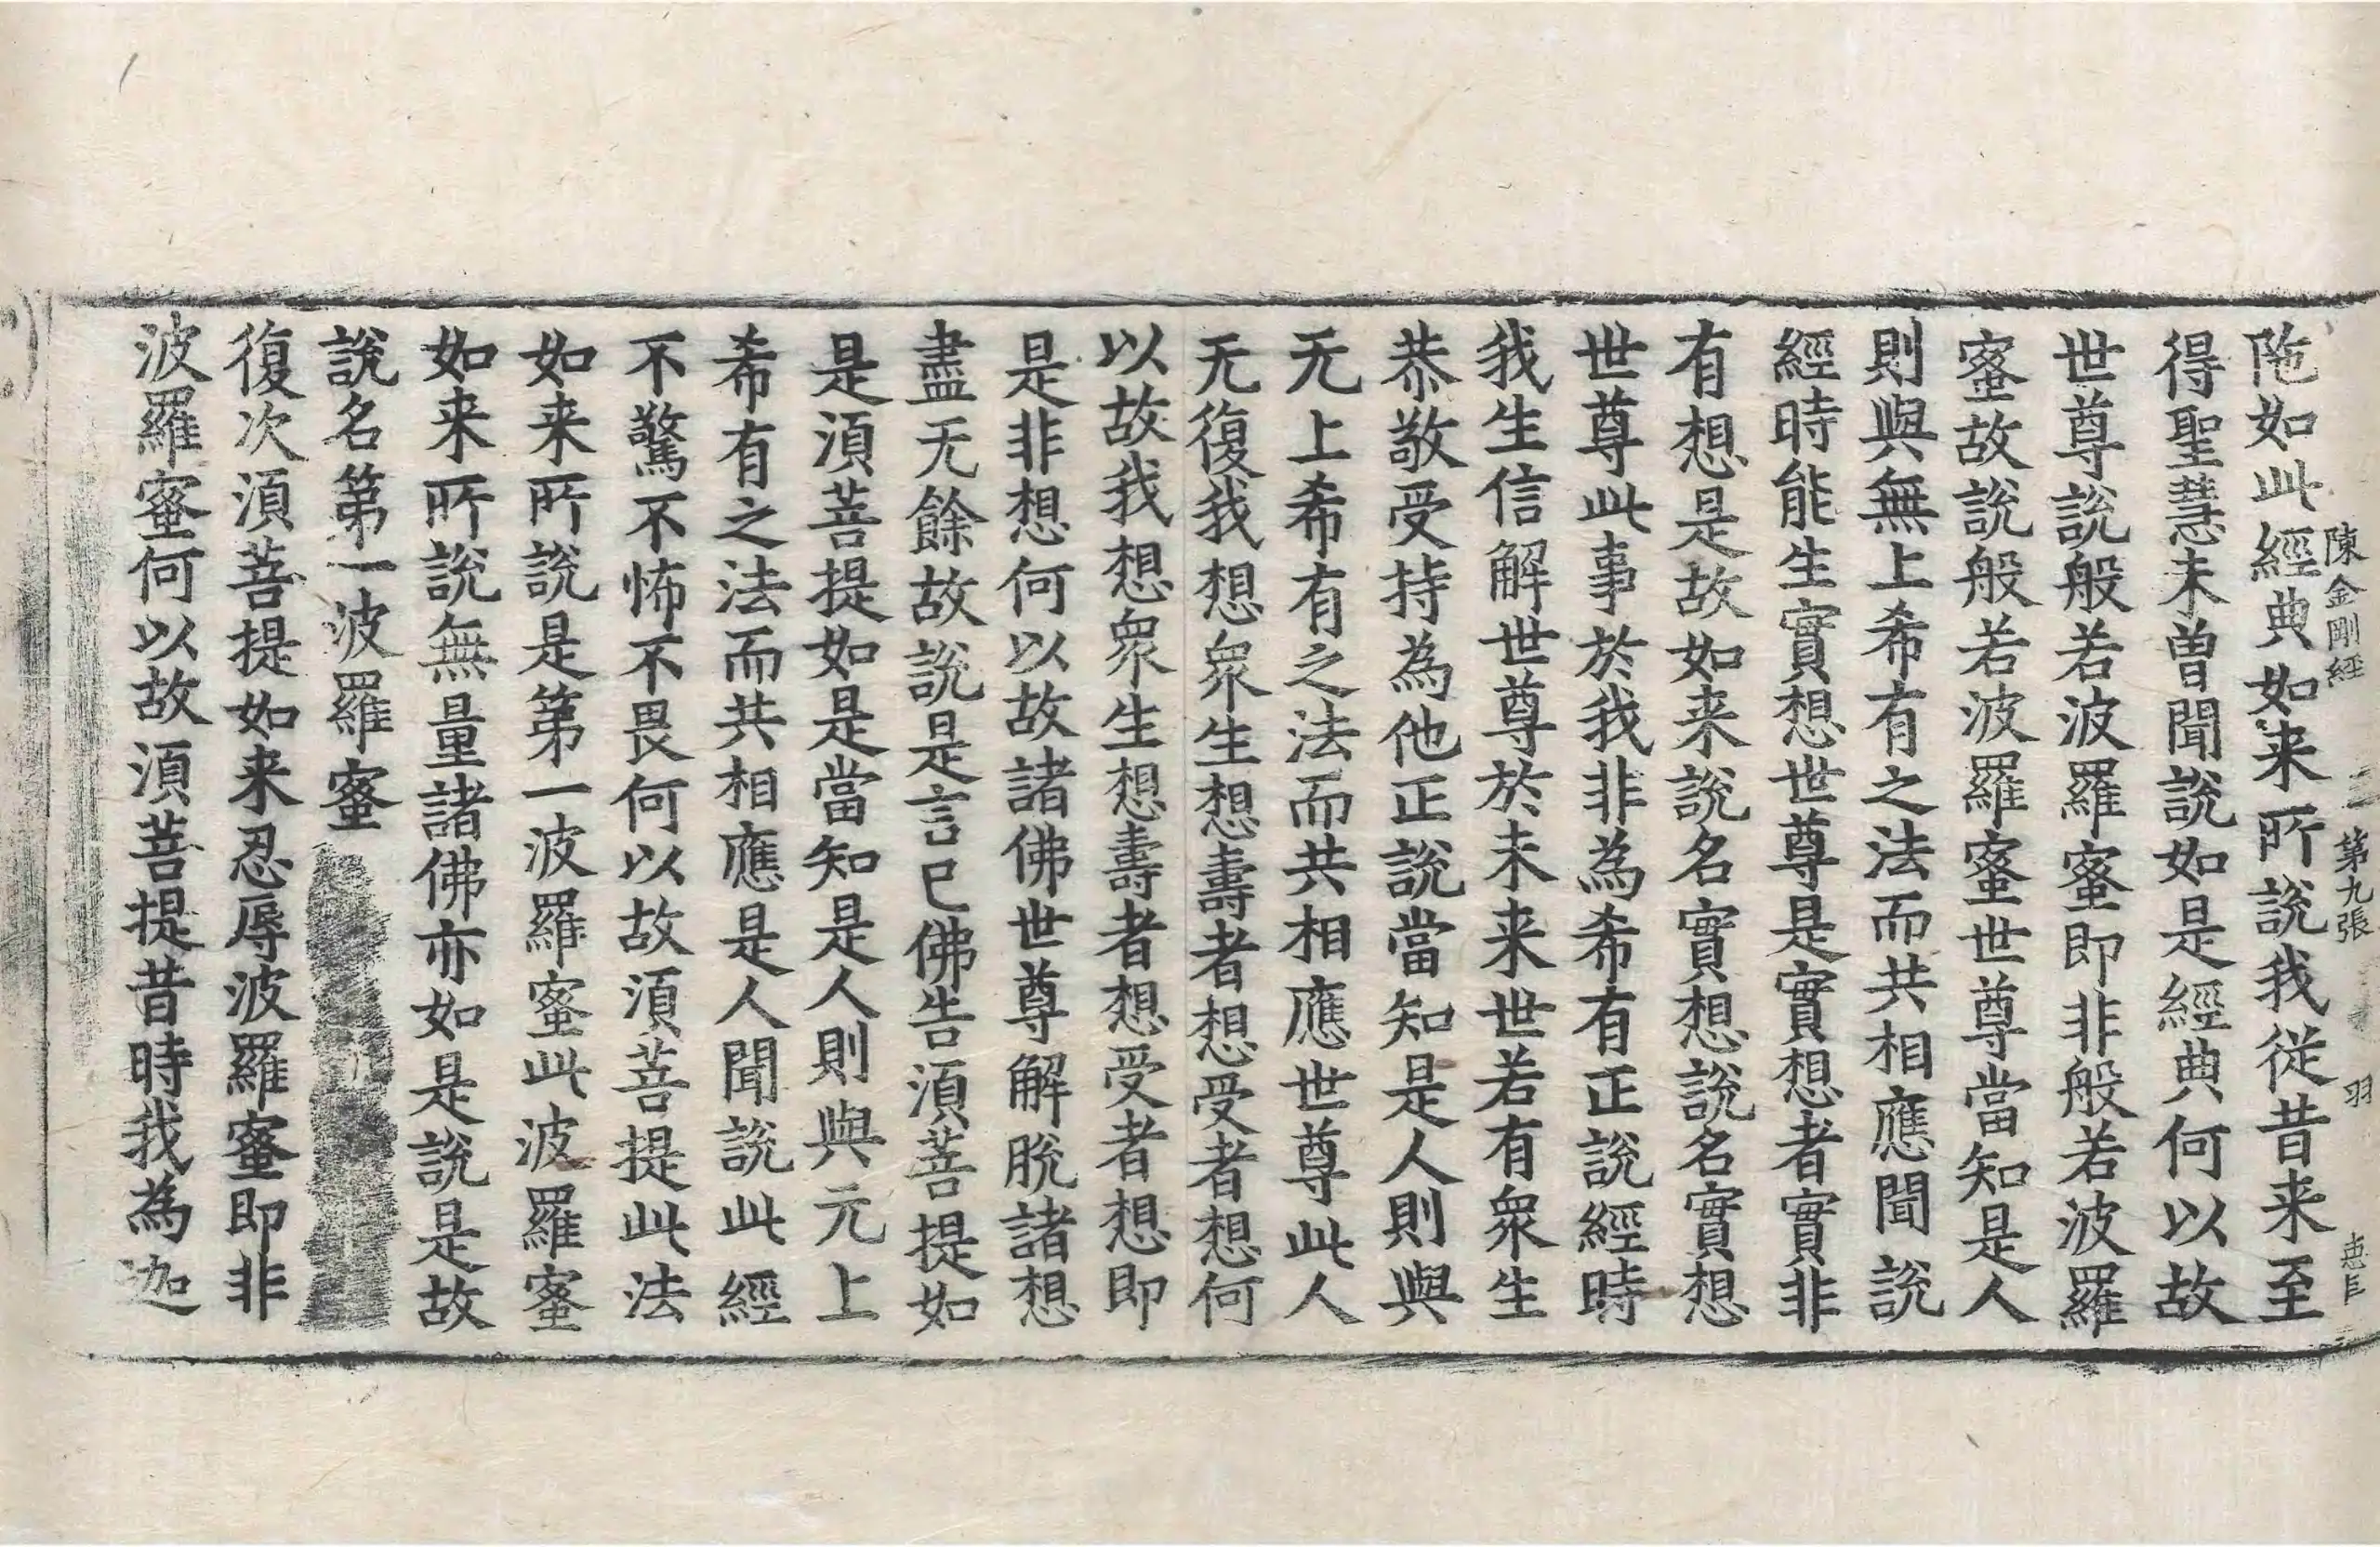 陳金剛經 第九張 羽
陁如此經典如来所說我従昔来至
得聖慧未曽聞說如是經典何以故
世尊說般若波羅蜜即非般若波羅
蜜故說般若波羅蜜世尊當知是人
則與無上希有之法而共相應聞說
經時能生實想世尊是實想者實非
有想是故如来說名實想說名實想
世尊此事於我非為希有正說經時
我生信解世尊於未来世若有衆生
恭敬受持為他正說當知是人則與
无上希有之法而共相應世尊此人
无復我想衆生想壽者想受者想何
以故我想衆生想壽者想受者想即
是非想何以故諸佛世尊解脫諸想
盡无餘故說是言已佛告湏菩提如
是湏菩提如是當知是人則與元上
希有之法而共相應是人聞說此經
不驚不怖不畏何以故湏菩提此法
如来所說是第一波羅蜜此波羅蜜
如来所說無量諸佛亦如是說是故
說名第一波羅蜜
復次湏菩提如来忍辱波羅蜜即非
波羅蜜何以故湏菩提昔時我為迦